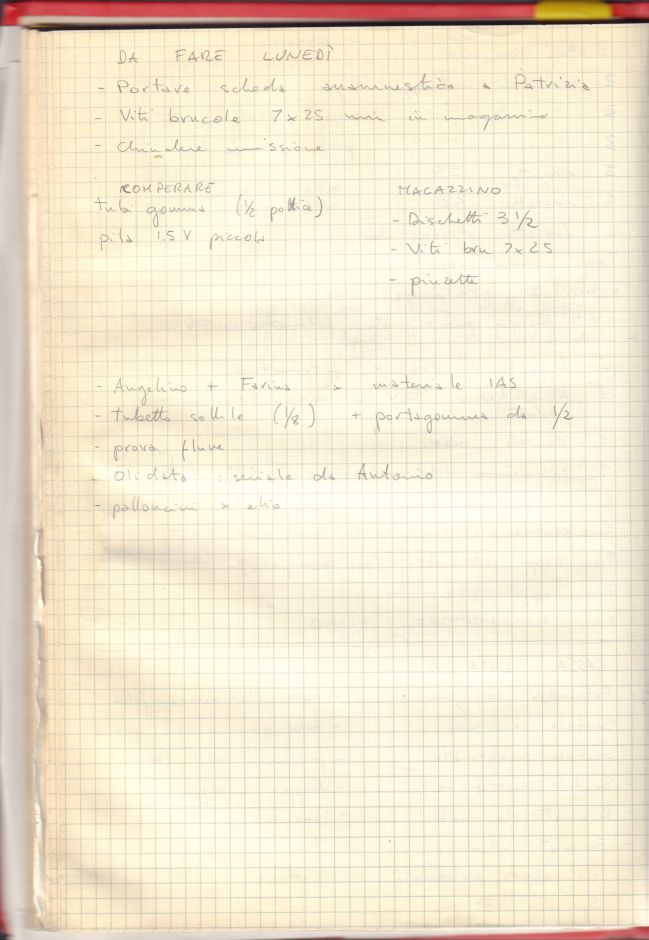 DA FARE LUNEDÌ
- Portare scheda anamnestica a Patrizia
- Viti brucole 7x25 mm in magazzino
- Chiudere missione
COMPERARE
tubi gomma (1/2 pollice)
pila 1.5 V piccola
MAGAZZINO
- Dischetti 3 1/2
- Viti bru 7x25
- pinzette
- Angelino + Farina x materiale IAS
- tubetto sottile (1/8) + portagomma da 1/2
- prova
- Olidata : seriale da Antonio
- palloncini x elio